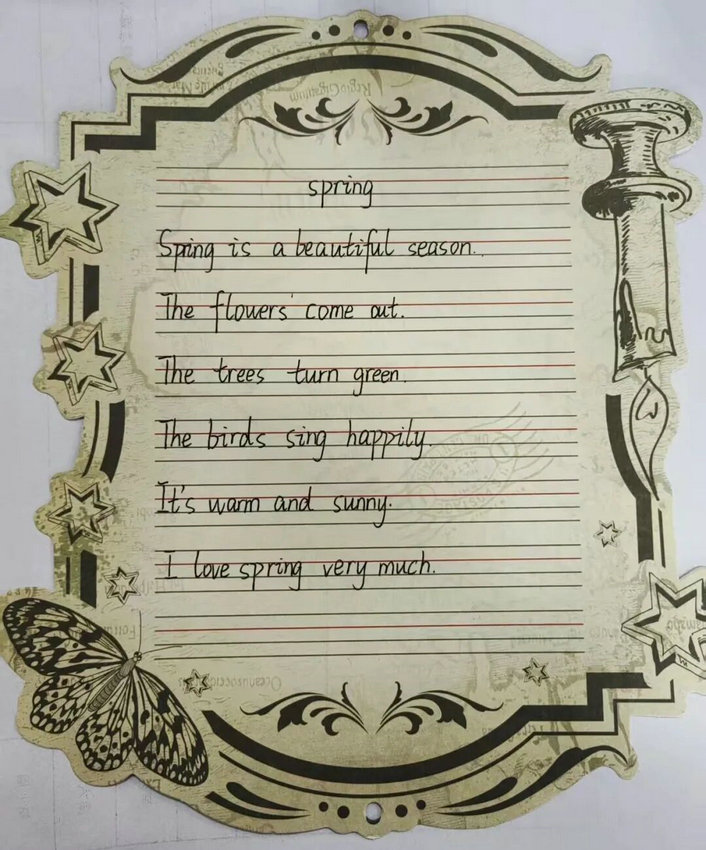 spring
Spring is a beautiful season.
The flowers come out.
The trees turn green.
The birds sing happily.
It's warm and sunny.
I love spring very much.